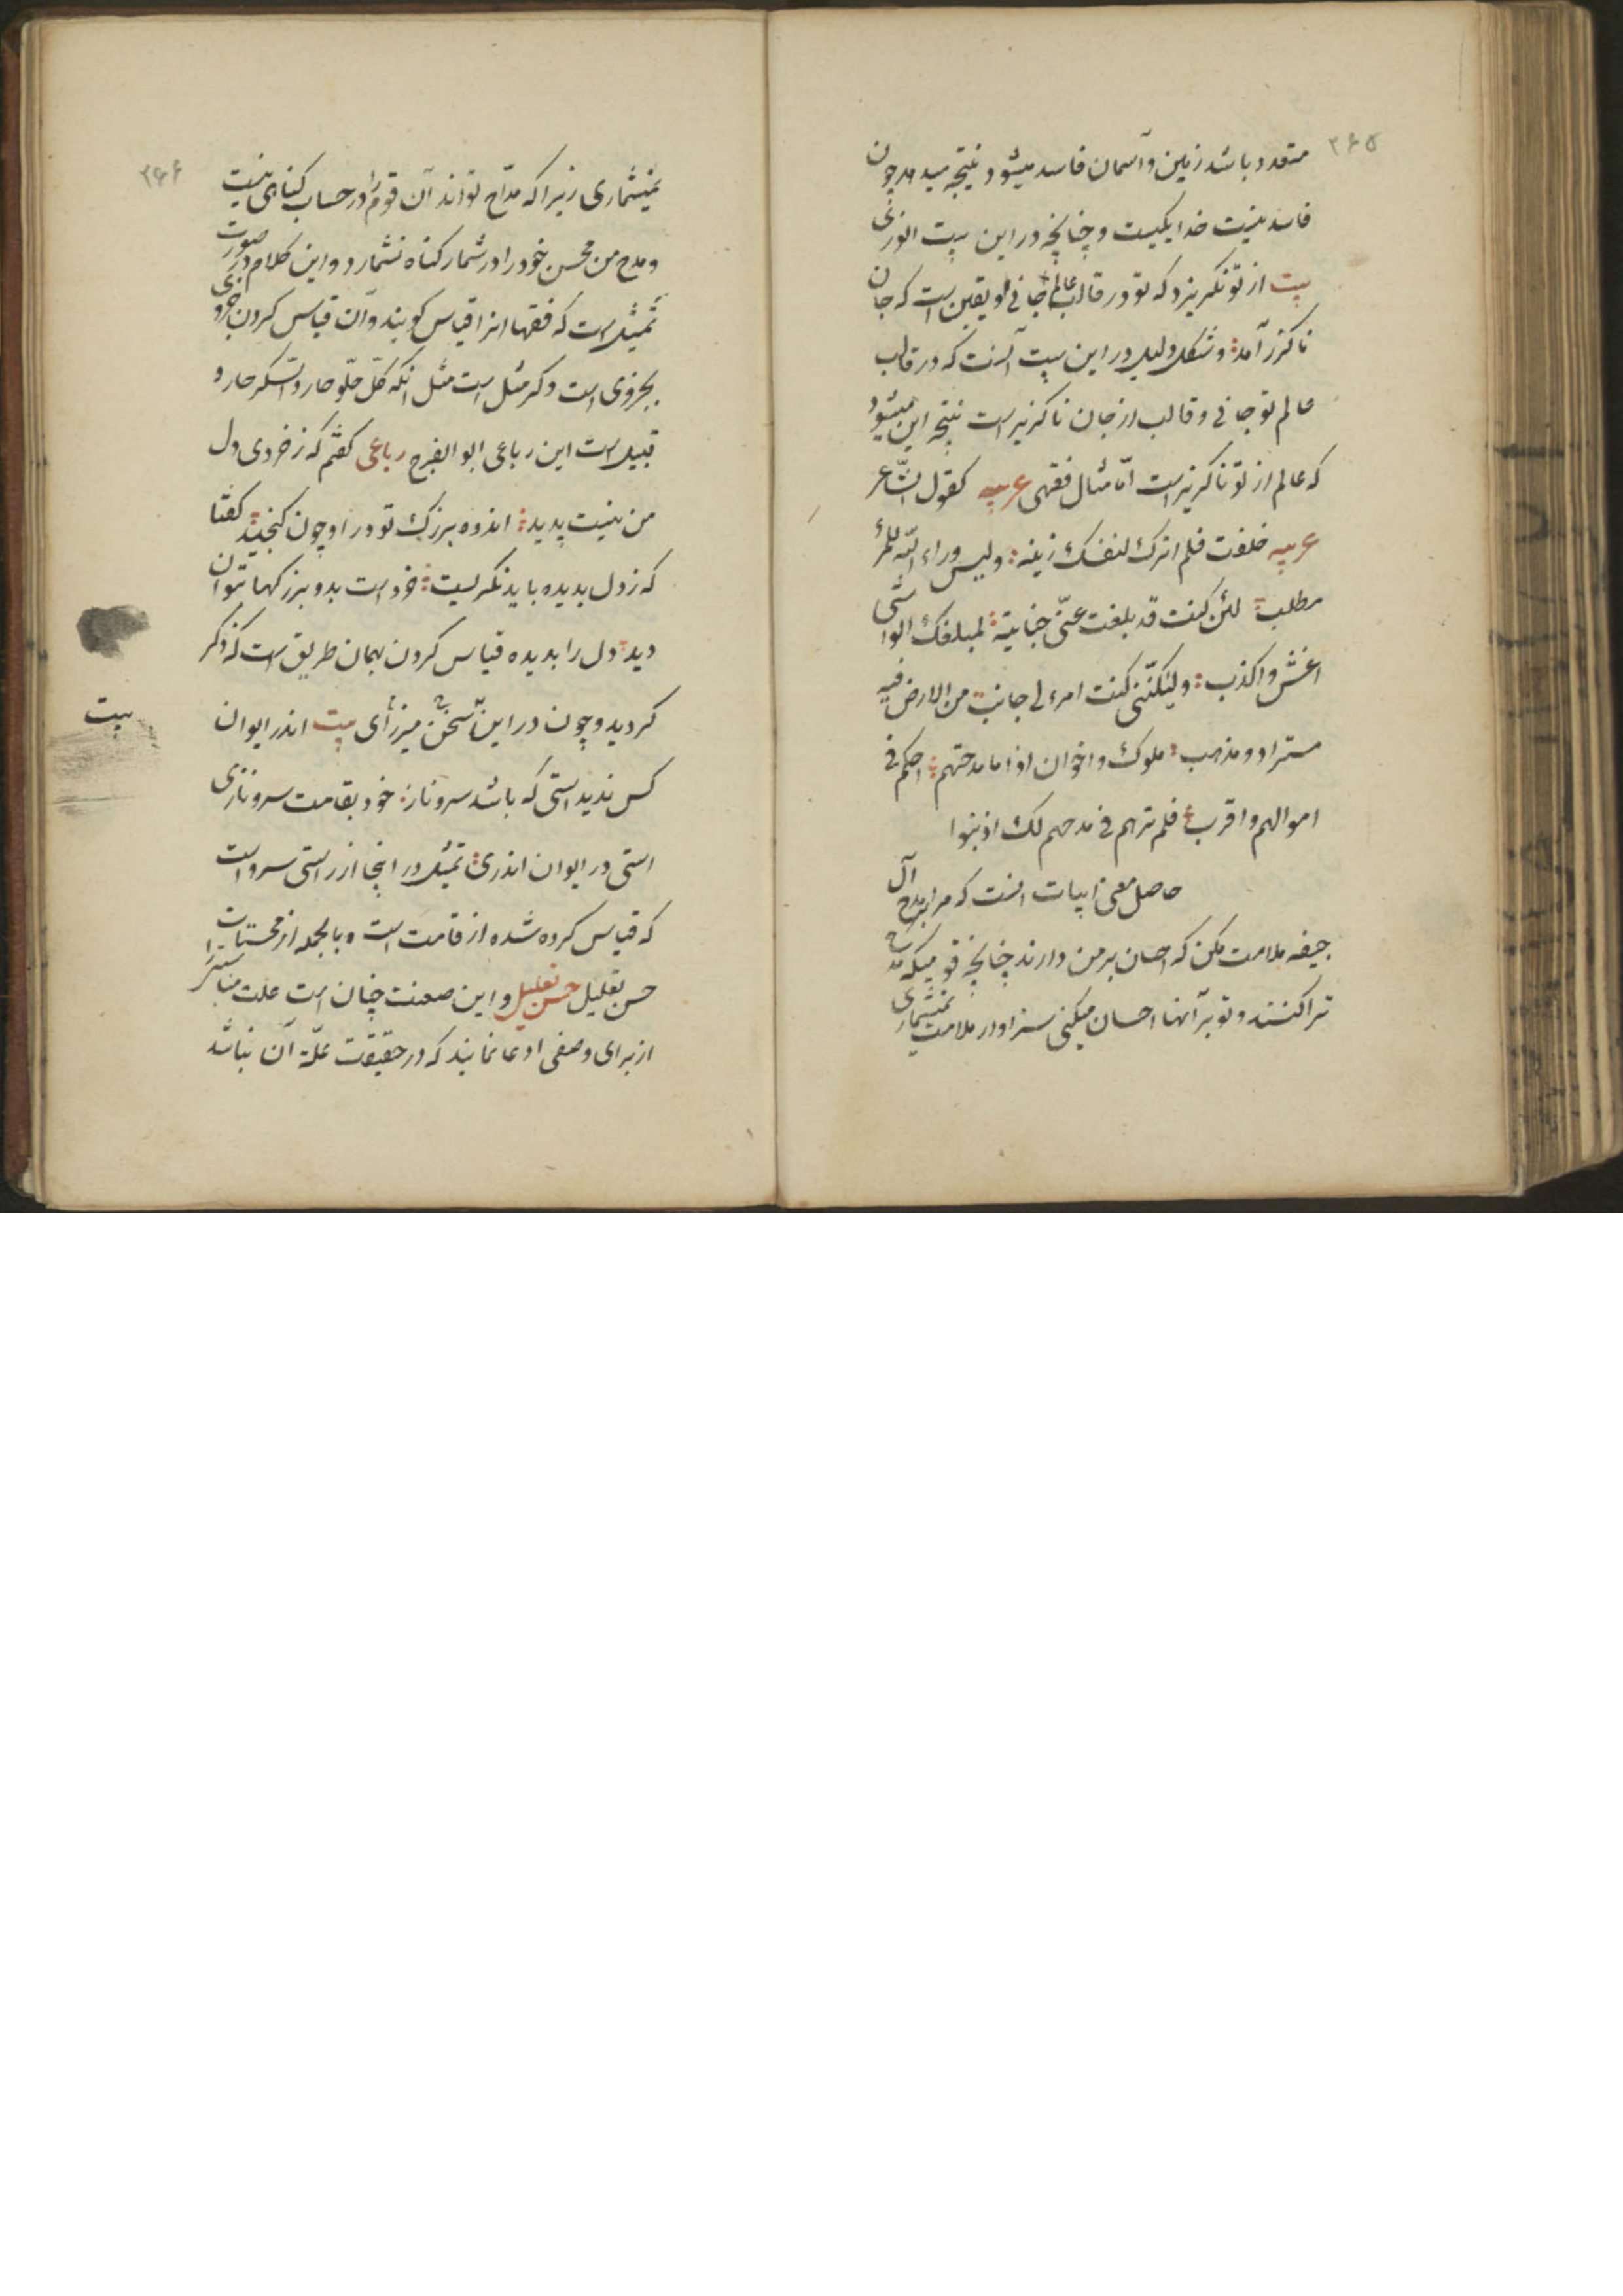 ۲۶۵
متعدد باشد زمین و آسمان فاسد میشود نتیجه میدهد چون
فاسد نیست خدا یکیست و چنانچه در این بیت انوری
بیت از تو نگریزد که تو در قالب عالم جانی و یقین است که جان
ناگزر آمد و شکل دلیل در این بیت آنست که در قالب
عالم تو جانی و قالب از جان ناگزیر است نتیجه این میشود
که عالم از تو ناگزیر است اما مثال فقهی عربیه کقول الشاعر
عربیه حلفت فلم اترک لنفسک ریبة ولیس وراء الله للمرء
مطلب لئن کنت قد بلغت عنی خیانة لمبلغک الواشی
اغش و اکذب ولکننی کنت امرء لی جانب من الارض فیه
مستراد و مذهب ملوک و اخوان اذا ما مدحتهم احکم فی
اموالهم و اقرب فلم ترهم فی مدحهم لک اذنبوا
حاصل معنی ابیات انست که مرا بر مدح آل
جفنه ملامت مکن که احسان بر من دارند چنانچه قومیکه مدح
ترا کنند و تو بر آنها احسان میکنی سزاوار ملامت نمیشماری
۲۶۶
نمیشماری زیرا که مداح تواند آن قوم را در حساب گناهی نیست
و مدح من محسن خود را در شمار گناه نشمارد و این کلام در صورت
تمثیل است که فقها انرا قیاس گویند و آن قیاس کردن جزوی
بجزوی است دگر مثل است مثل انکه کل حلو حار و السکر حار و
قبیل است این رباعی ابو الفرج رباعی گفتم که ز خردی دل
من نیست پدید اندوه بزرگ تو در او چون گنجید گفتا
که ز دل بدیده باید نگریست خرد است بدو بزرگها بتوان
دید دل را بدیده قیاس کردن بهمان طریق است که ذکر
گردید و چون در این سخن میرزای بیت اندر ایوان
بیت
کس ندید استی که باشد سرو ناز خود بقامت سرو نازی
استی در ایوان اندری تمثیل در اینجا از راستی سرو است
که قیاس کرده شده از قامت است و بالجمله از محسنات
حسن تعلیل حسن تعلیل و این صعنت چنان است علت مناسبی را
از برای وصفی ادعا نمایند که در حقیقت علة آن نباشد